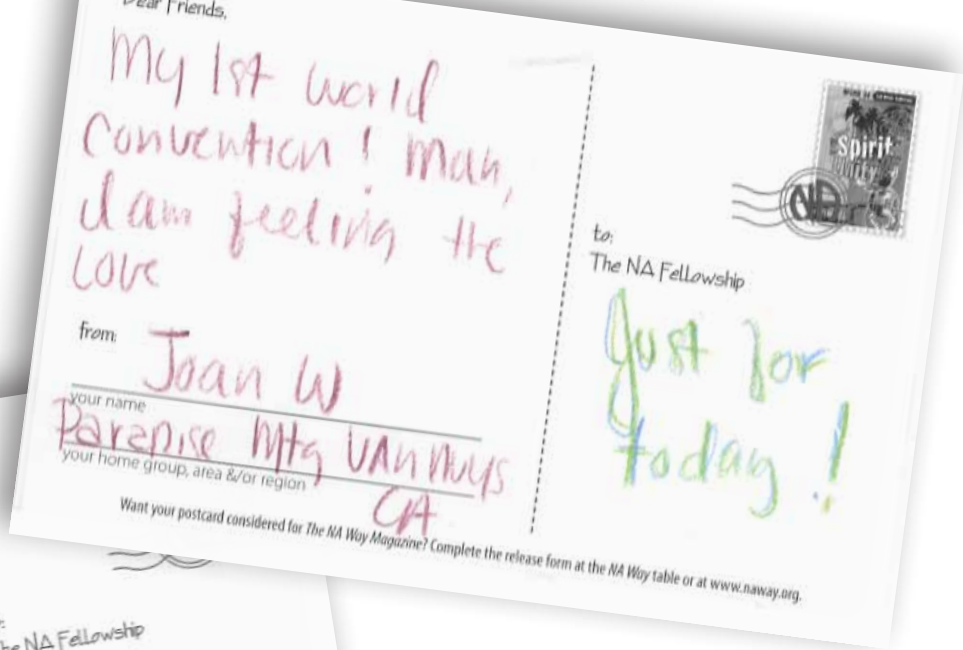 Dear Friends,
My 1st world
convention! Man,
I am feeling the
Love
from:
Joan W
your name
Paradise Mtg VAn Nuys
CA
your home group, area &/or region
Spirit
NA
to:
The NA Fellowship
Just for
today!
Want your postcard considered for The NA Way Magazine? Complete the release form at the NA Way table or at www.naway.org.
The NA Fellowship